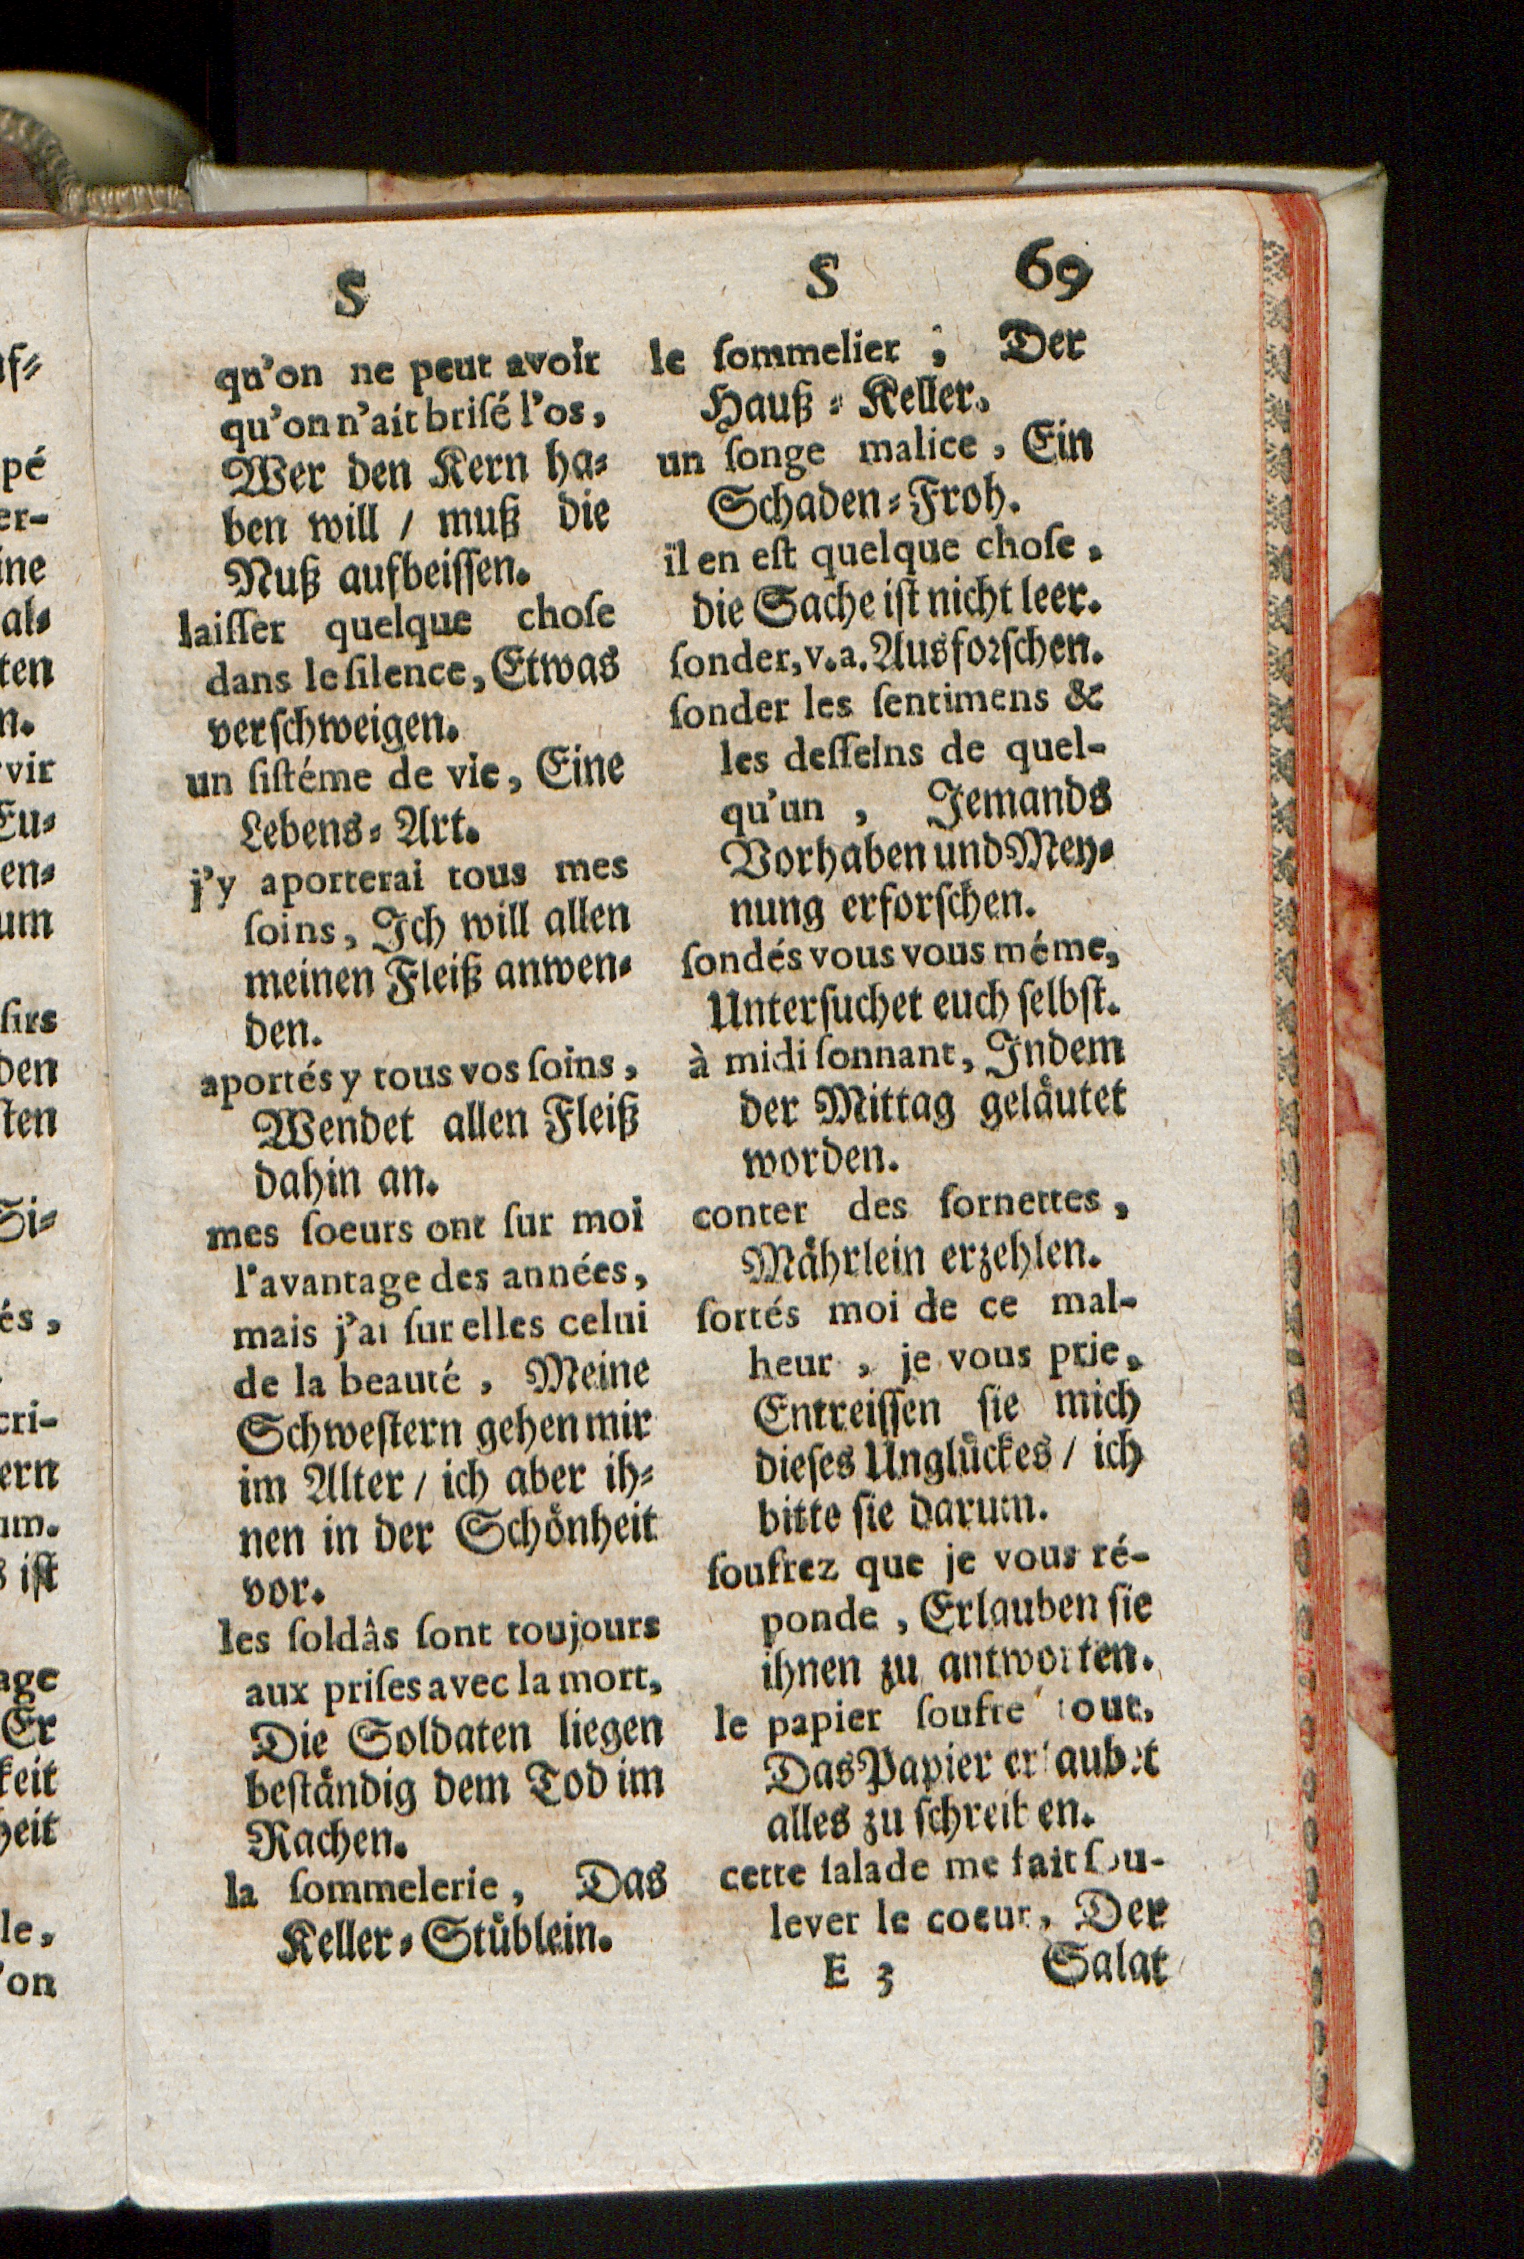 S
qu'on ne peut avoir
qu'on n'ait briſé l'os,
Wer den Kern ha⸗
ben will / muß die
Nuß aufbeiſſen.
laiſſer quelque choſe
dans le ſilence, Etwas
verſchweigen.
un ſiſtéme de vie, Eine
Lebens⸗Art.
j'y aporterai tous mes
ſoins, Ich will allen
meinen Fleiß anwen⸗
den.
aportés y tous vos ſoins,
Wendet allen Fleiß
dahin an.
mes ſoeurs ont ſur moi
l'avantage des années,
mais j'ai ſur elles celui
de la beauté, Meine
Schweſtern gehen mir
im Alter / ich aber ih⸗
nen in der Schoͤnheit
vor.
les ſoldâs ſont toujours
aux priſes avec la mort,
Die Soldaten liegen
beſtaͤndig dem Tod im
Rachen.
la ſommelerie, Das
Keller⸗Stuͤblein.
S 69
le ſommelier, Der
Hauß⸗Keller.
un ſonge malice, Ein
Schaden⸗Froh.
il en eſt quelque choſe,
die Sache iſt nicht leer.
ſonder, v. a. Ausforſchen.
ſonder les ſentimens &
les deſſeins de quel-
qu'un, Jemands
Vorhaben und Mey⸗
nung erforſchen.
ſondés vous vous méme,
Unterſuchet euch ſelbſt.
à midi ſonnant, Indem
der Mittag gelaͤutet
worden.
conter des ſornettes,
Maͤhrlein erzehlen.
ſortés moi de ce mal-
heur, je vous prie,
Entreiſſen ſie mich
dieſes Ungluͤckes / ich
bitte ſie darum.
ſoufrez que je vous ré-
ponde, Erlauben ſie
ihnen zu antworten.
le papier ſoufre tout,
Das Papier erlaubet
alles zu ſchreiben.
cette ſalade me fait ſou-
lever le coeur, Der
E 3 Salat